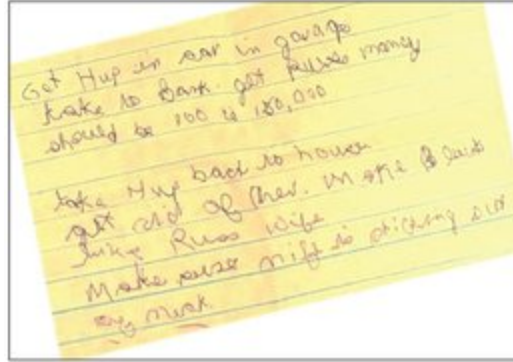 Get Hup in car in garage
take to bank. get purse money
should be 100 to 150,000
take Hup back to house
get rid of her. Make it look
like Russ wife
Make sure knife is sticking out
neck